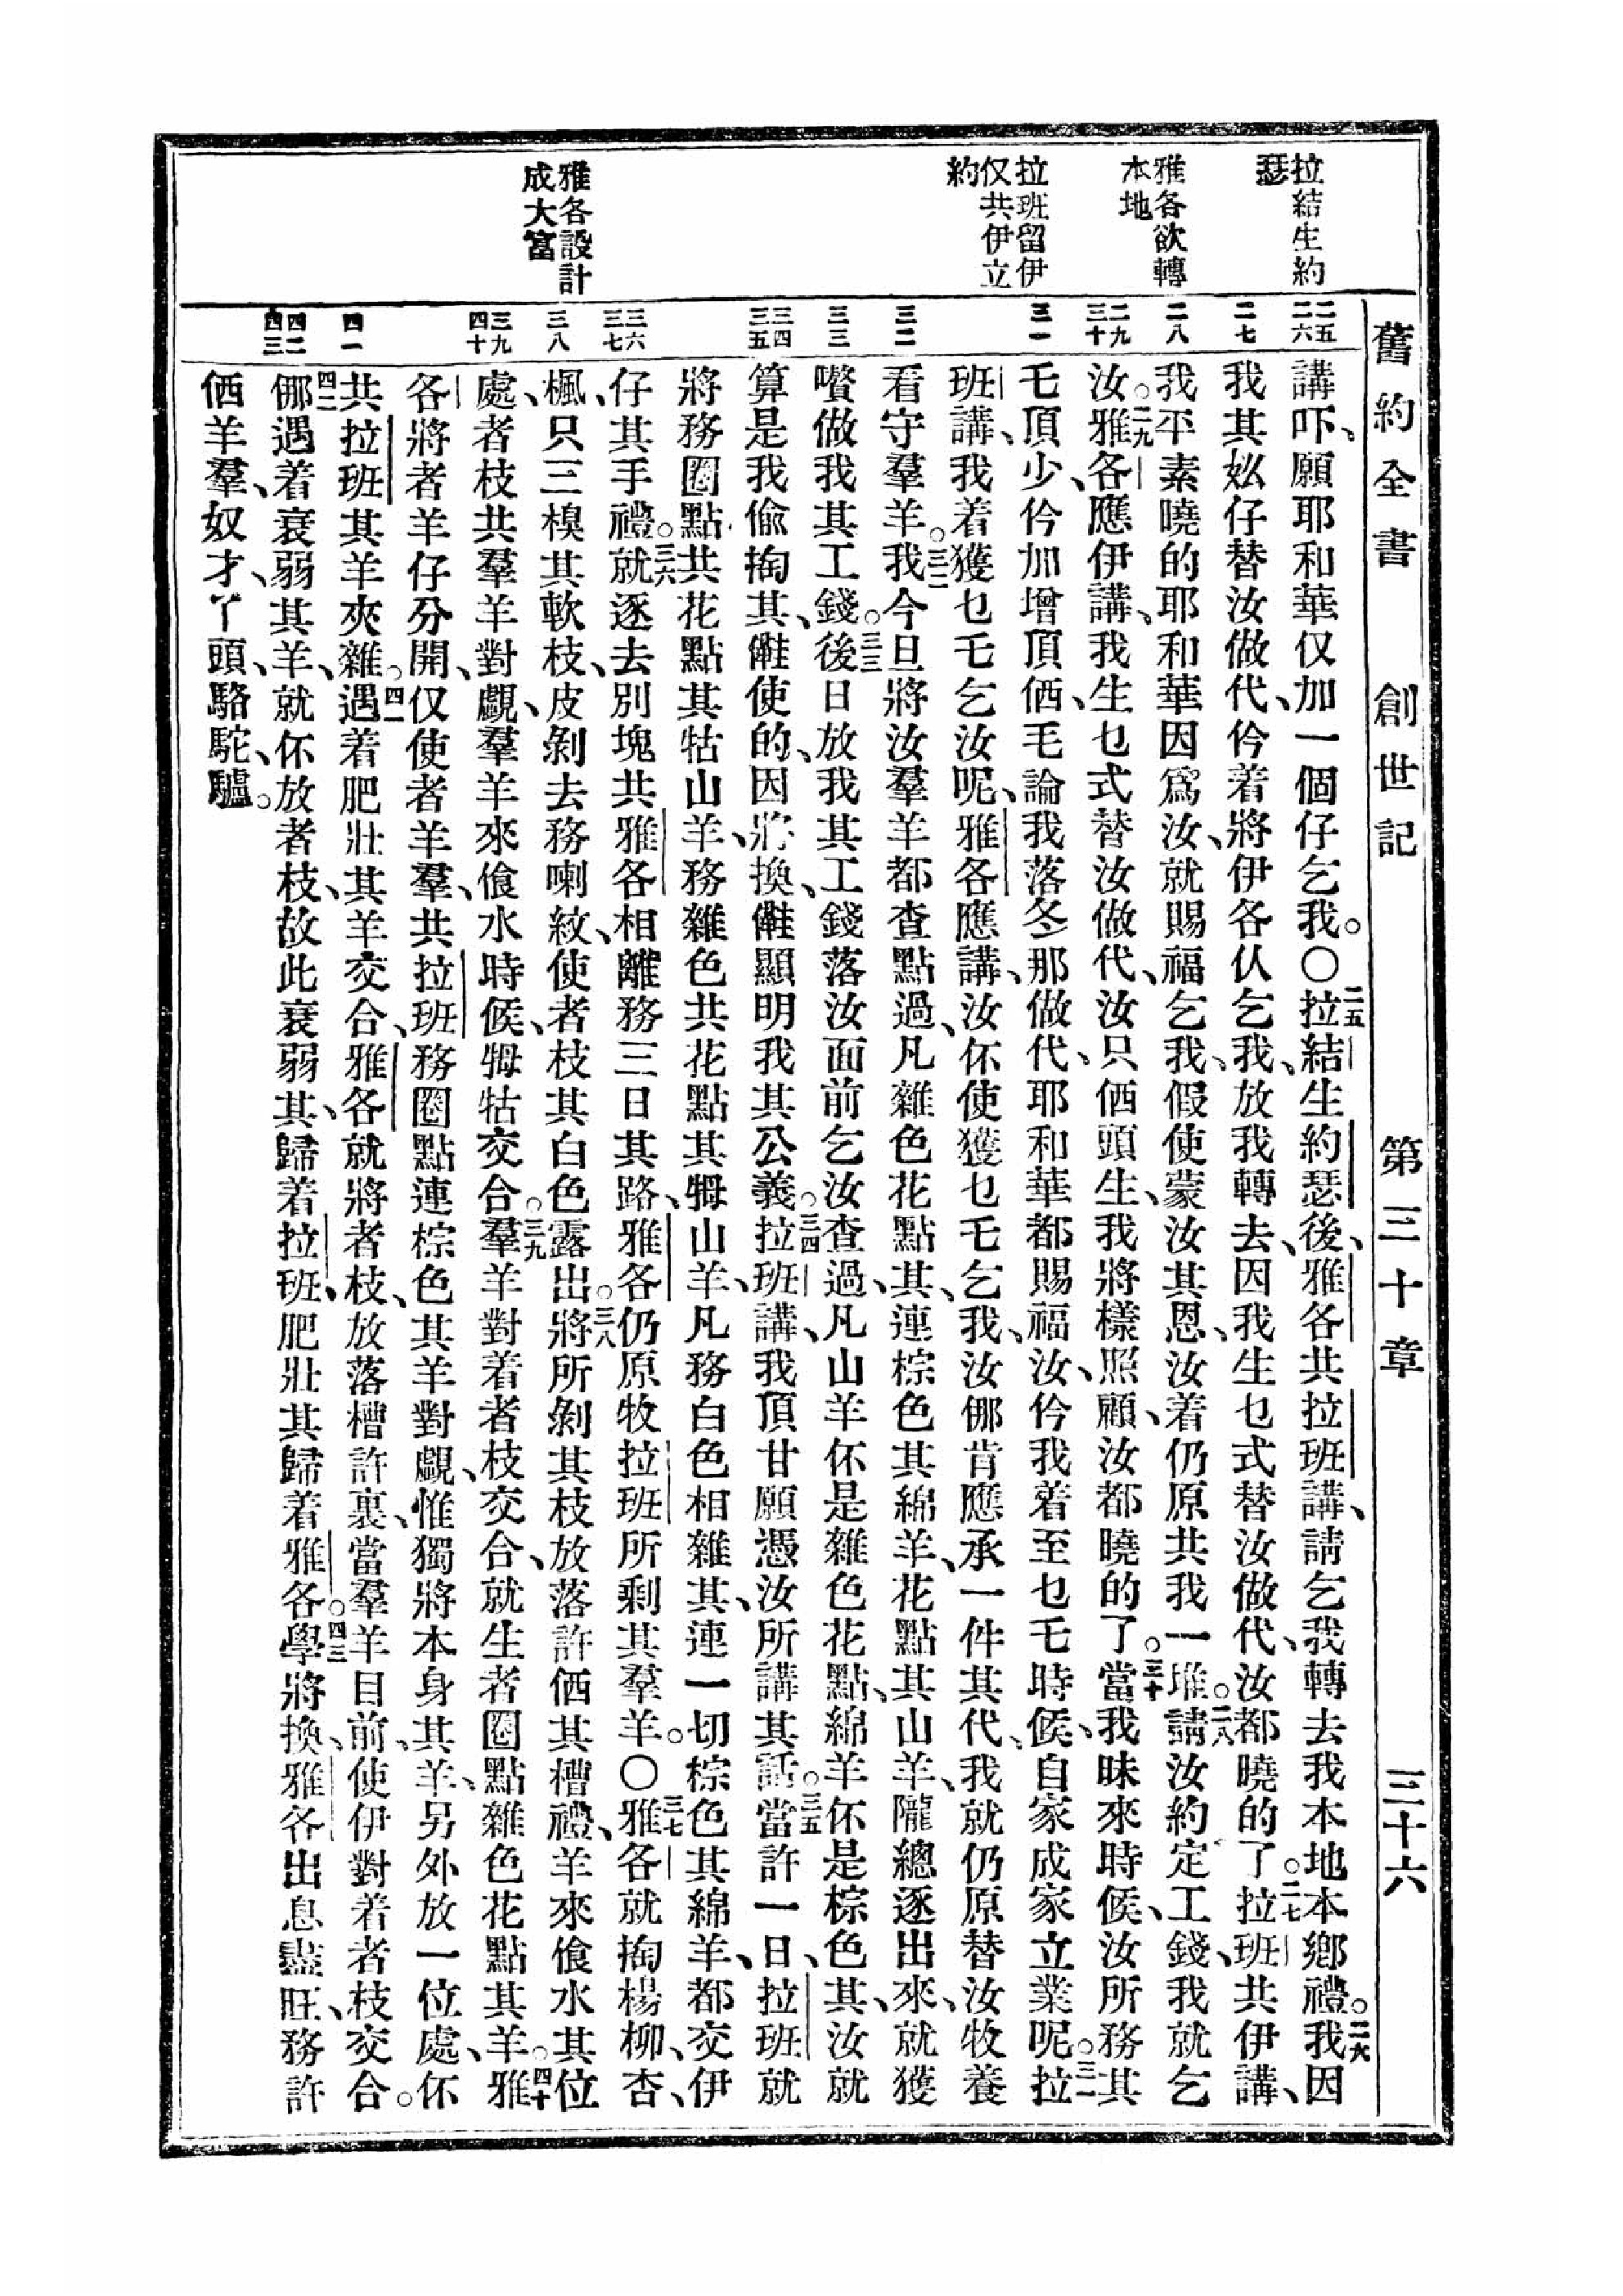 舊約全書　創世記　第三十章　三十六
拉結生約
瑟
雅各欲轉
本地
拉班留伊
仅共伊立
約
雅各設計
成大富
二五
二六
二七
二八
二九
三十
三一
三二
三三
三四
三五
三六
三七
三八
三九
四十
四一
四二
四三
講吓、願耶和華仅加一個仔乞我。〇二五拉結生約瑟後、雅各共拉班講、請乞我轉去我本地本鄉禮。二六我因
我其妖仔替汝做代、仱着將伊各仈乞我、放我轉去、因我生乜式替汝做代、汝都曉的了。二七拉班共伊講、
我平素曉的耶和華因爲汝、就賜福乞我、假使蒙汝其恩、汝着仍原共我一堆。二八請汝約定工錢、我就乞
汝。二九雅各應伊講、我生乜式替汝做代、汝只㑚頭生、我將樣照顧、汝都曉的了。三十當我昧來時候、汝所務其
毛頂少、仱加增頂㑚毛、論我落冬那做代、耶和華都賜福汝、仱我着至乜毛時候、自家成家立業呢。三一拉
班講、我着獲乜乇乞汝呢、雅各應講、汝伓使獲乜乇乞我、汝㑚肯應承一件其代、我就仍原替汝牧養
看守羣羊。三二我今旦將汝羣羊都查點過、凡雜色花點其、連棕色其綿羊、花點其山羊、隴總逐出來、就獲
囋做我其工錢。三三後日放我其工錢落汝面前乞汝查過、凡山羊伓是雜色花點、綿羊伓是棕色其、汝就
算是我偸掏其、㒕使的、因將換、㒕顯明我其公義。三四拉班講、我頂甘願憑汝所講其話。三五當許一日、拉班就
將務圈點共花點其牯山羊、務雜色共花點其㹇山羊、凡務白色相雜其、連一切棕色其綿羊、都交伊
仔其手禮。三六就逐去別塊共雅各相離務三日其路、雅各仍原牧拉班所剩其羣羊。〇三七雅各就掏楊柳、杏、
楓、只三模其軟枝、皮剝去務喇紋、使者枝其白色露出。三八將所剝其枝、放落許㑚其槽禮、羊來飧水其位
處、者枝共羣羊對覷、羣羊來飧水時候、㹇牯交合。三九羣羊對着者枝交合、就生者圈點雜色花點其羊。四十雅
各將者羊仔分開、仅使者羊羣、共拉班務圈點連棕色其羊對覷、惟獨將本身其羊、另外放一位處、伓
共拉班其羊夾雜。四一遇着肥壯其羊交合、雅各就將者枝、放落槽許裏、當羣羊目前、使伊對着者枝交合。
四二㑚遇着衰弱其羊、就伓放者枝、故此衰弱其、歸着拉班、肥壯其歸着雅各。四三學將換、雅各出息盡旺、務許
㑚羊羣、奴才、丫頭、駱駝、驢。